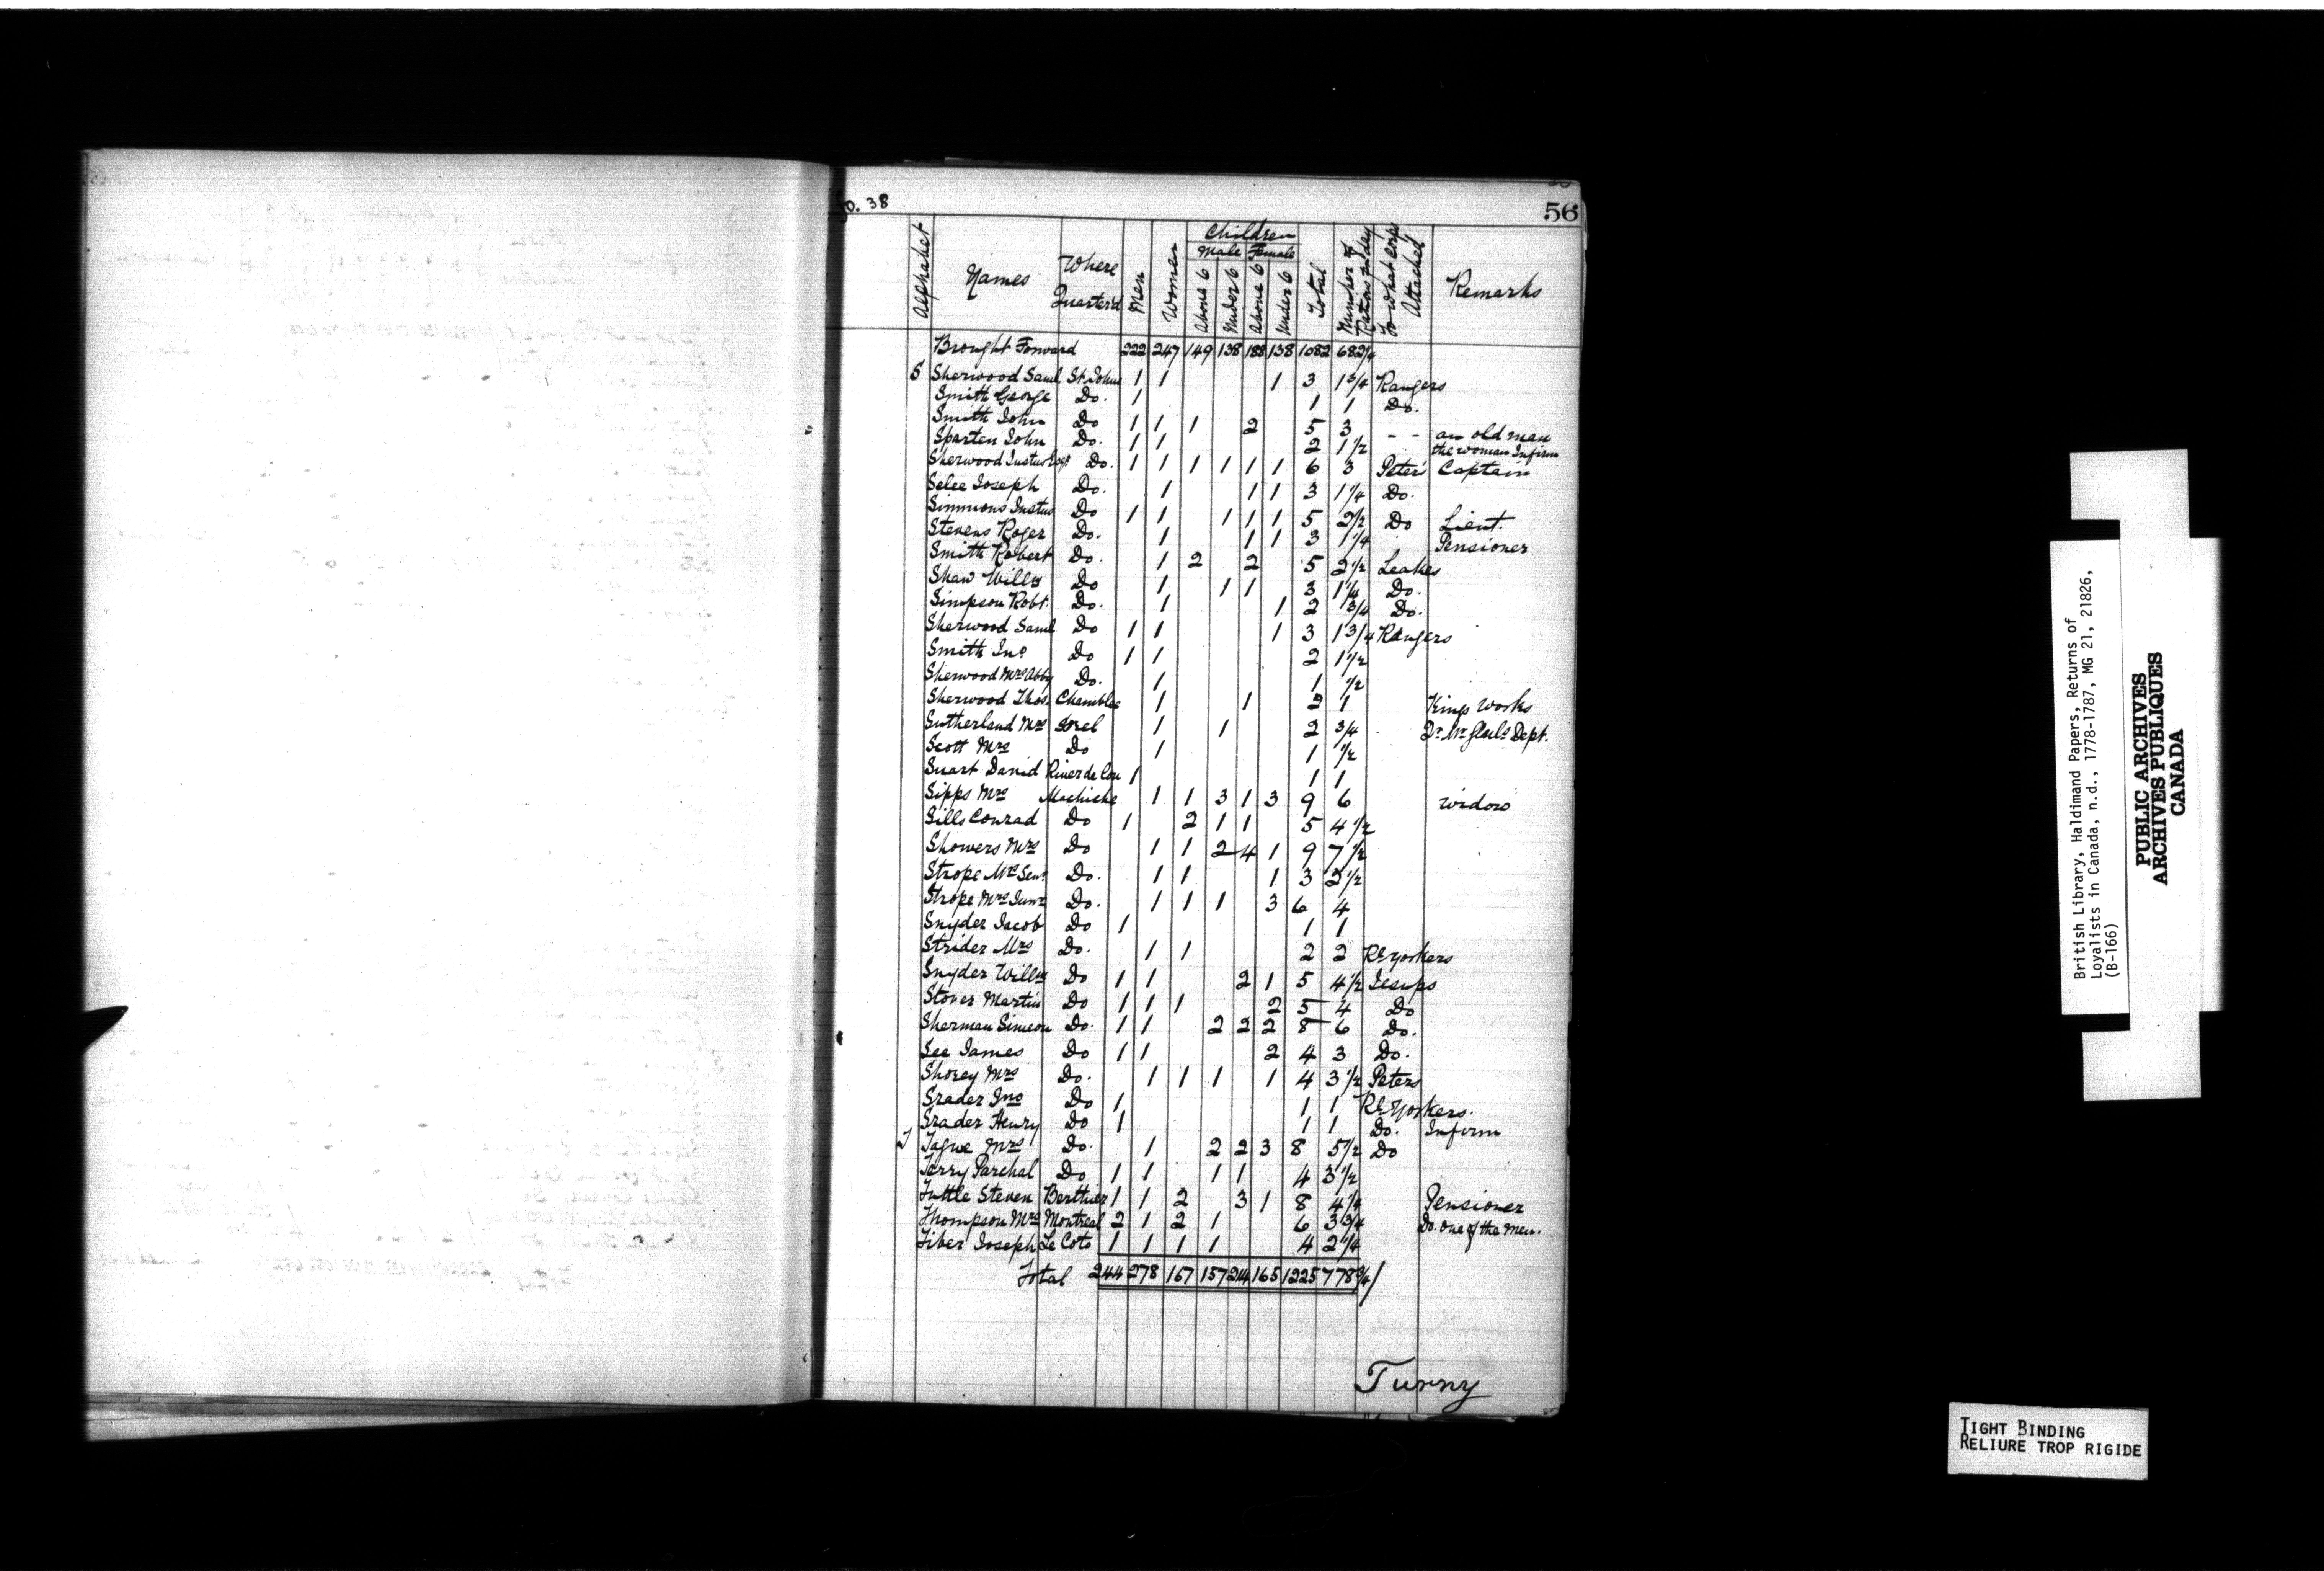 o. 38
56
Alphabet Names Where Quarter'd Men Women Children Male Female Above 6 Under 6 Above 6 Under 6 Total Number of Rations P day To what Corps Attached Remarks
Brought Forward 222 247 149 138 188 138 1082 682 1/4
S Sherwood Saml St Johns 1 1 1 3 1 3/4 Rangers
Smith George Do. 1 1 1 Do.
Smith John Do 1 1 1 2 5 3 - - an old man
Sparten John Do. 1 1 2 1 1/2 the woman Infirm
Sherwood Justus Esqr Do. 1 1 1 1 1 1 6 3 Peters Captain
Selee Joseph Do. 1 1 1 3 1 1/4 Do.
Simmons Justus Do 1 1 1 1 1 5 2 1/2 Do Lieut.
Stevens Roger Do. 1 1 1 3 1 1/4 Pensioner
Smith Robert Do. 1 2 2 5 2 1/2 Leakes
Shaw Willm Do 1 1 1 3 1 1/4 Do.
Simpson Robt. Do. 1 1 2 3/4 Do.
Sherwood Saml Do 1 1 1 3 1 3/4 Rangers
Smith Jno Do 1 1 2 1 1/2
Sherwood Mrs Abby Do. 1 1 1/2
Sherwood Thos. Chamblee 1 1 2 1 Kings Works
Sutherland Mrs Sorel 1 1 2 3/4 Dept.
Scott Mrs Do 1 1 1/2
David River de Lou 1 1 1
Sipps Mrs Machiche 1 1 3 1 3 9 6 widow
Sills Conrad Do 1 2 1 1 5 4 1/2
Showers Mrs Do 1 1 2 4 1 9 7 1/2
Strope Mrs Senr Do. 1 1 1 3 2 1/2
Strope Mrs Junr Do. 1 1 1 3 6 4
Snyder Jacob Do 1 1 1
Strider Mrs Do. 1 1 2 2 Rl Yorkers
Snyder Willm Do 1 1 2 1 5 4 1/2 Jesups
Stover Martin Do 1 1 1 2 5 4 Do
Sherman Simeon Do. 1 1 2 2 2 8 6 Do.
See James Do 1 1 2 4 3 Do.
Shorey Mrs Do. 1 1 1 1 4 3 1/2 Peters
Srader Jno Do 1 1 1 Rl Yorkers.
Srader Henry Do 1 1 1 Do. Infirm
T Tague Mrs Do. 1 2 2 3 8 5 1/2 Do
Terry Parchal Do 1 1 1 1 4 3 1/2
Tuttle Steven Berthier 1 1 2 3 1 8 4 1/4 Pensioner
Thompson Mrs Montreal 2 1 2 1 6 3 3/4 Do. one of the Men.
Tiber Joseph Le Coto 1 1 1 1 4 2 1/4
Total 244 278 167 157 214 165 1225 778 3/4
Turny
British Library, Haldimand Papers, Returns of
Loyalists in Canada, n.d., 1778-1787, MG 21, 21826,
(B-166)
PUBLIC ARCHIVES
ARCHIVES PUBLIQUES
CANADA
TIGHT BINDING
RELIURE TROP RIGIDE